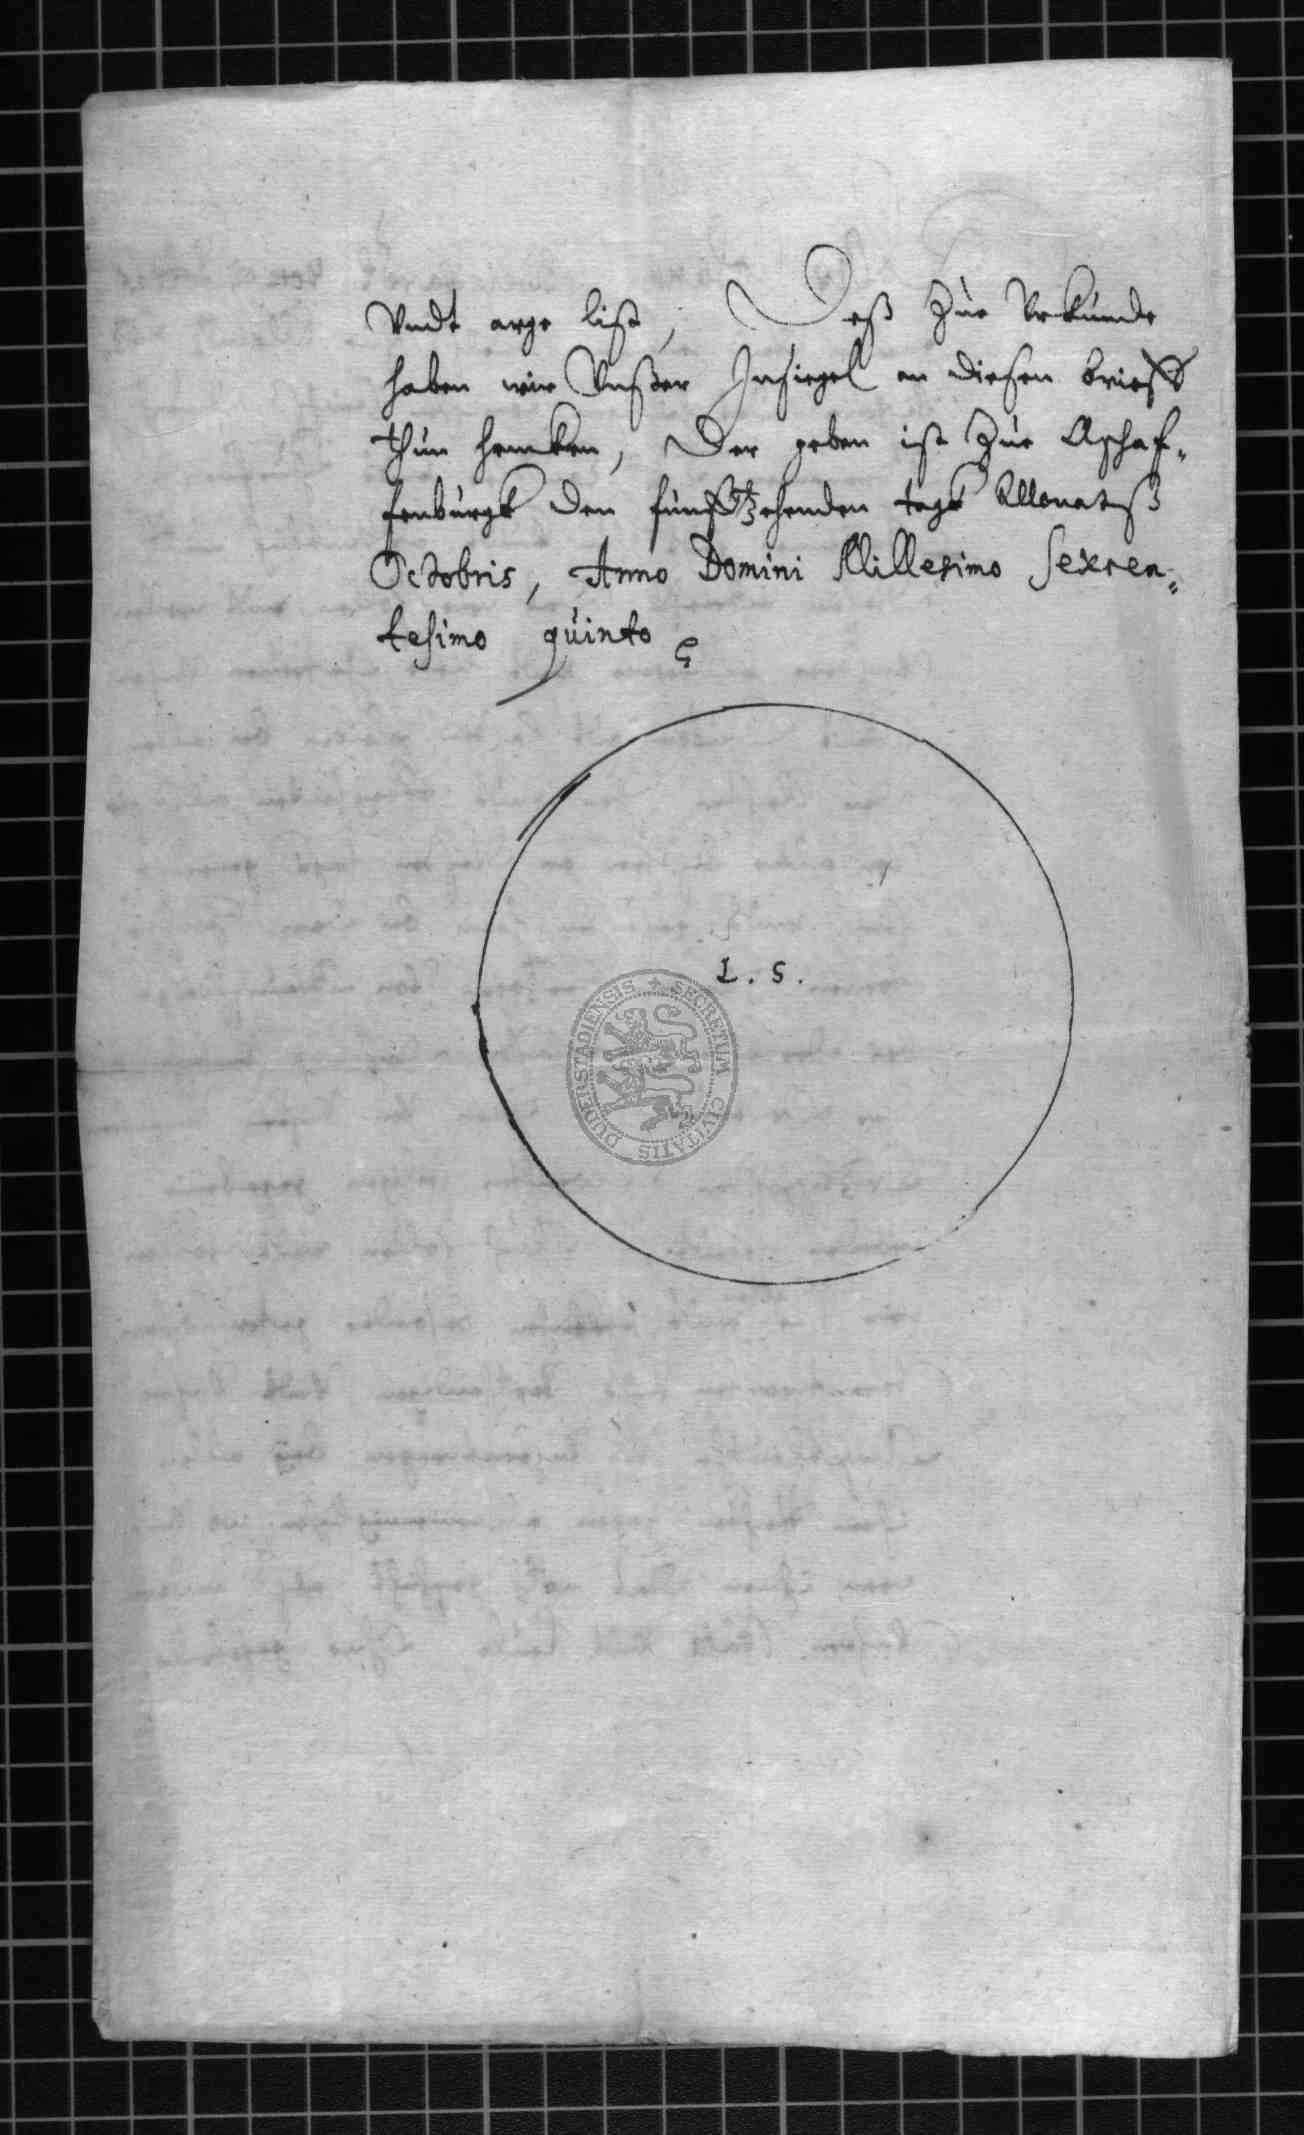 Vndt arge list, Deß Zur Vrkunde
haben wir Vnßer Insiegel an diesen brieff
thun hencken, Der geben ist Zur Aschaf-
fenburgk den funfftzehenden tagk Monatß
Octobris, Anno Domini Millesimo Sexcen-
tesimo quinto
L. S.
SECRETUM CIVITATIS DUDERSTADIENSIS